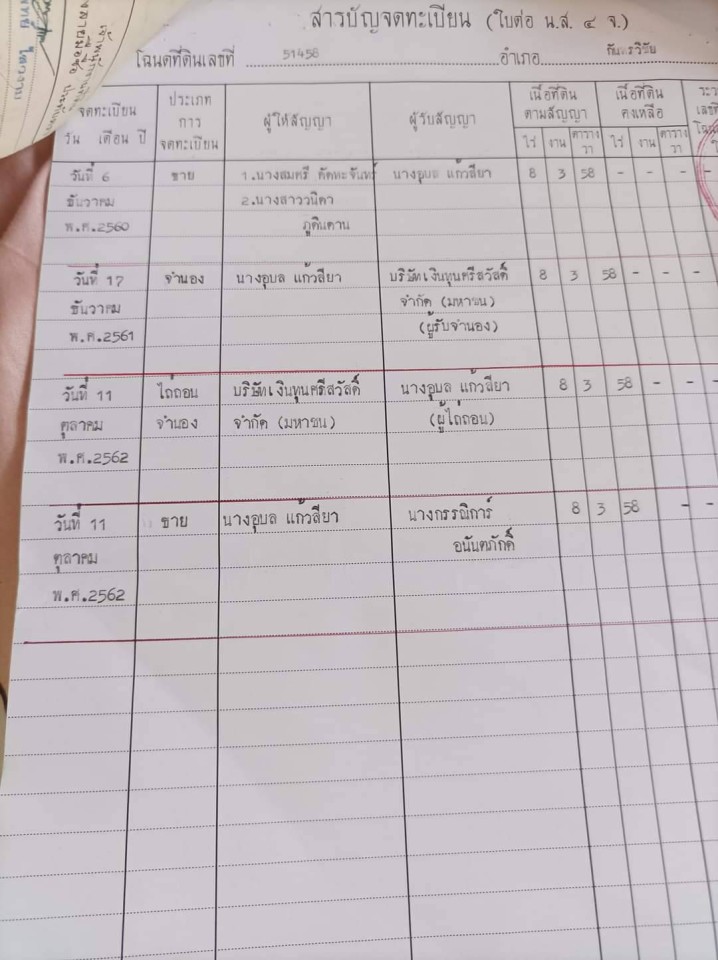 สารบัญจดทะเบียน (ใบต่อ น.ส. ๔ จ.)
โฉนดที่ดินเลขที่ 51458 อำเภอ กันทรวิชัย
จดทะเบียน
วัน เดือน ปี
ประเภท
การ
จดทะเบียน
ผู้ให้สัญญา
ผู้รับสัญญา
เนื้อที่ดิน
ตามสัญญา
ไร่ งาน ตาราง
วา
เนื้อที่ดิน
คงเหลือ
ไร่ งาน ตาราง
วา
เลขที่
วันที่ 6 ขาย 1.นางสมศรี นางอุบล แก้วสียา 8 3 58 - - -
ธันวาคม 2.นางสาววนิดา
พ.ศ.2560
วันที่ 17 จำนอง นางอุบล แก้วสียา บริษัทเงินทุนศรีสวัสดิ์ 8 3 58 - - -
ธันวาคม จำกัด (มหาชน)
พ.ศ.2561 (ผู้รับจำนอง)
วันที่ 11 ไถ่ถอน บริษัทเงินทุนศรีสวัสดิ์ นางอุบล แก้วสียา 8 3 58 - - -
ตุลาคม จำนอง จำกัด (มหาชน) (ผู้ไถ่ถอน)
พ.ศ.2562
วันที่ 11 ขาย นางอุบล แก้วสียา นางกรรณิการ์ 8 3 58 - -
ตุลาคม อนันตภักดิ์
พ.ศ.2562